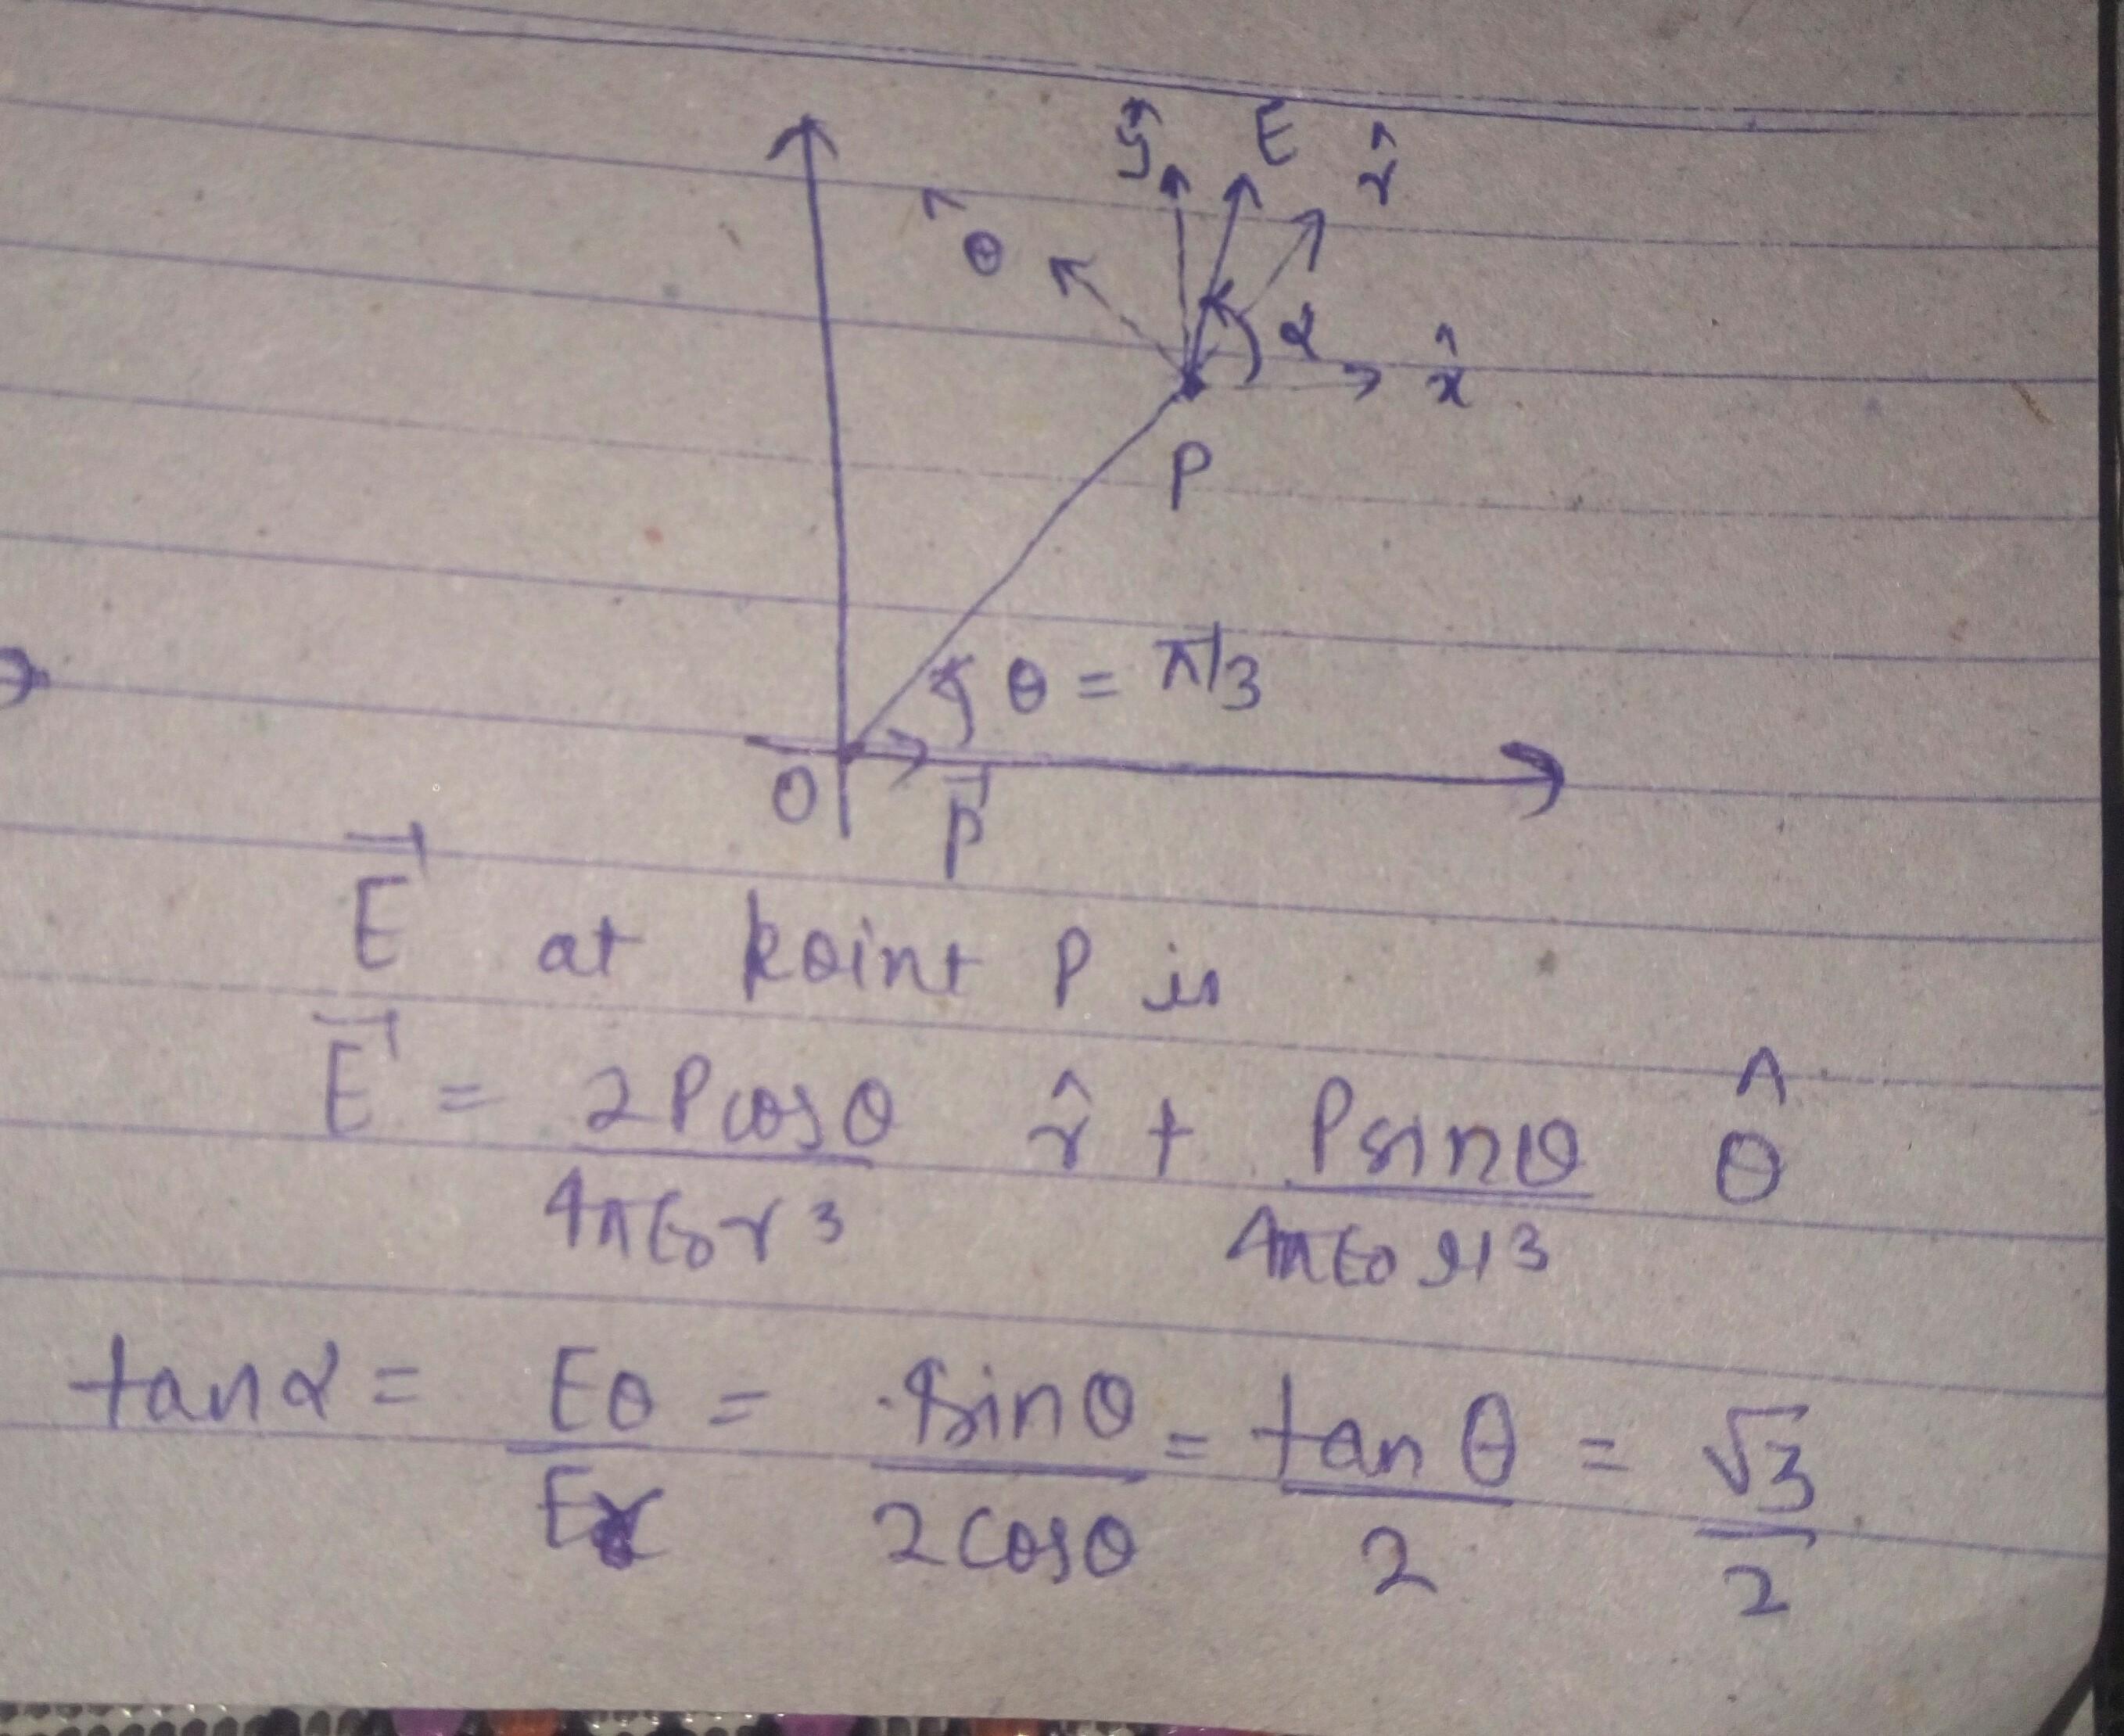 ŷ E r̂
θ̂
α x̂
P
θ = π/3
O p⃗
E⃗ at point P is
E⃗ = 2Pcosθ/4πε₀r³ r̂ + Psinθ/4πε₀r³ θ̂
tanα = Eθ/Er = sinθ/2cosθ = tanθ/2 = √3/2